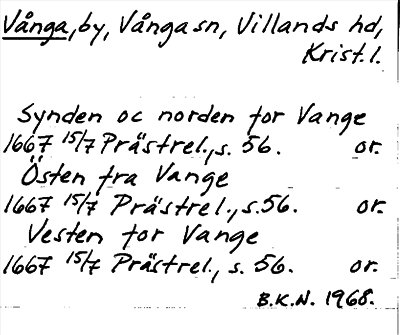 Vånga, by, Vånga sn, Villands hd,
Krist. l.
Synden oc norden for Vange
1667 15/7 Prästrel., s. 56. or.
Östen fra Vange
1667 15/7 Prästrel., s. 56. or.
Vesten for Vange
1667 15/7 Prästrel., s. 56. or.
B.K.N. 1968.